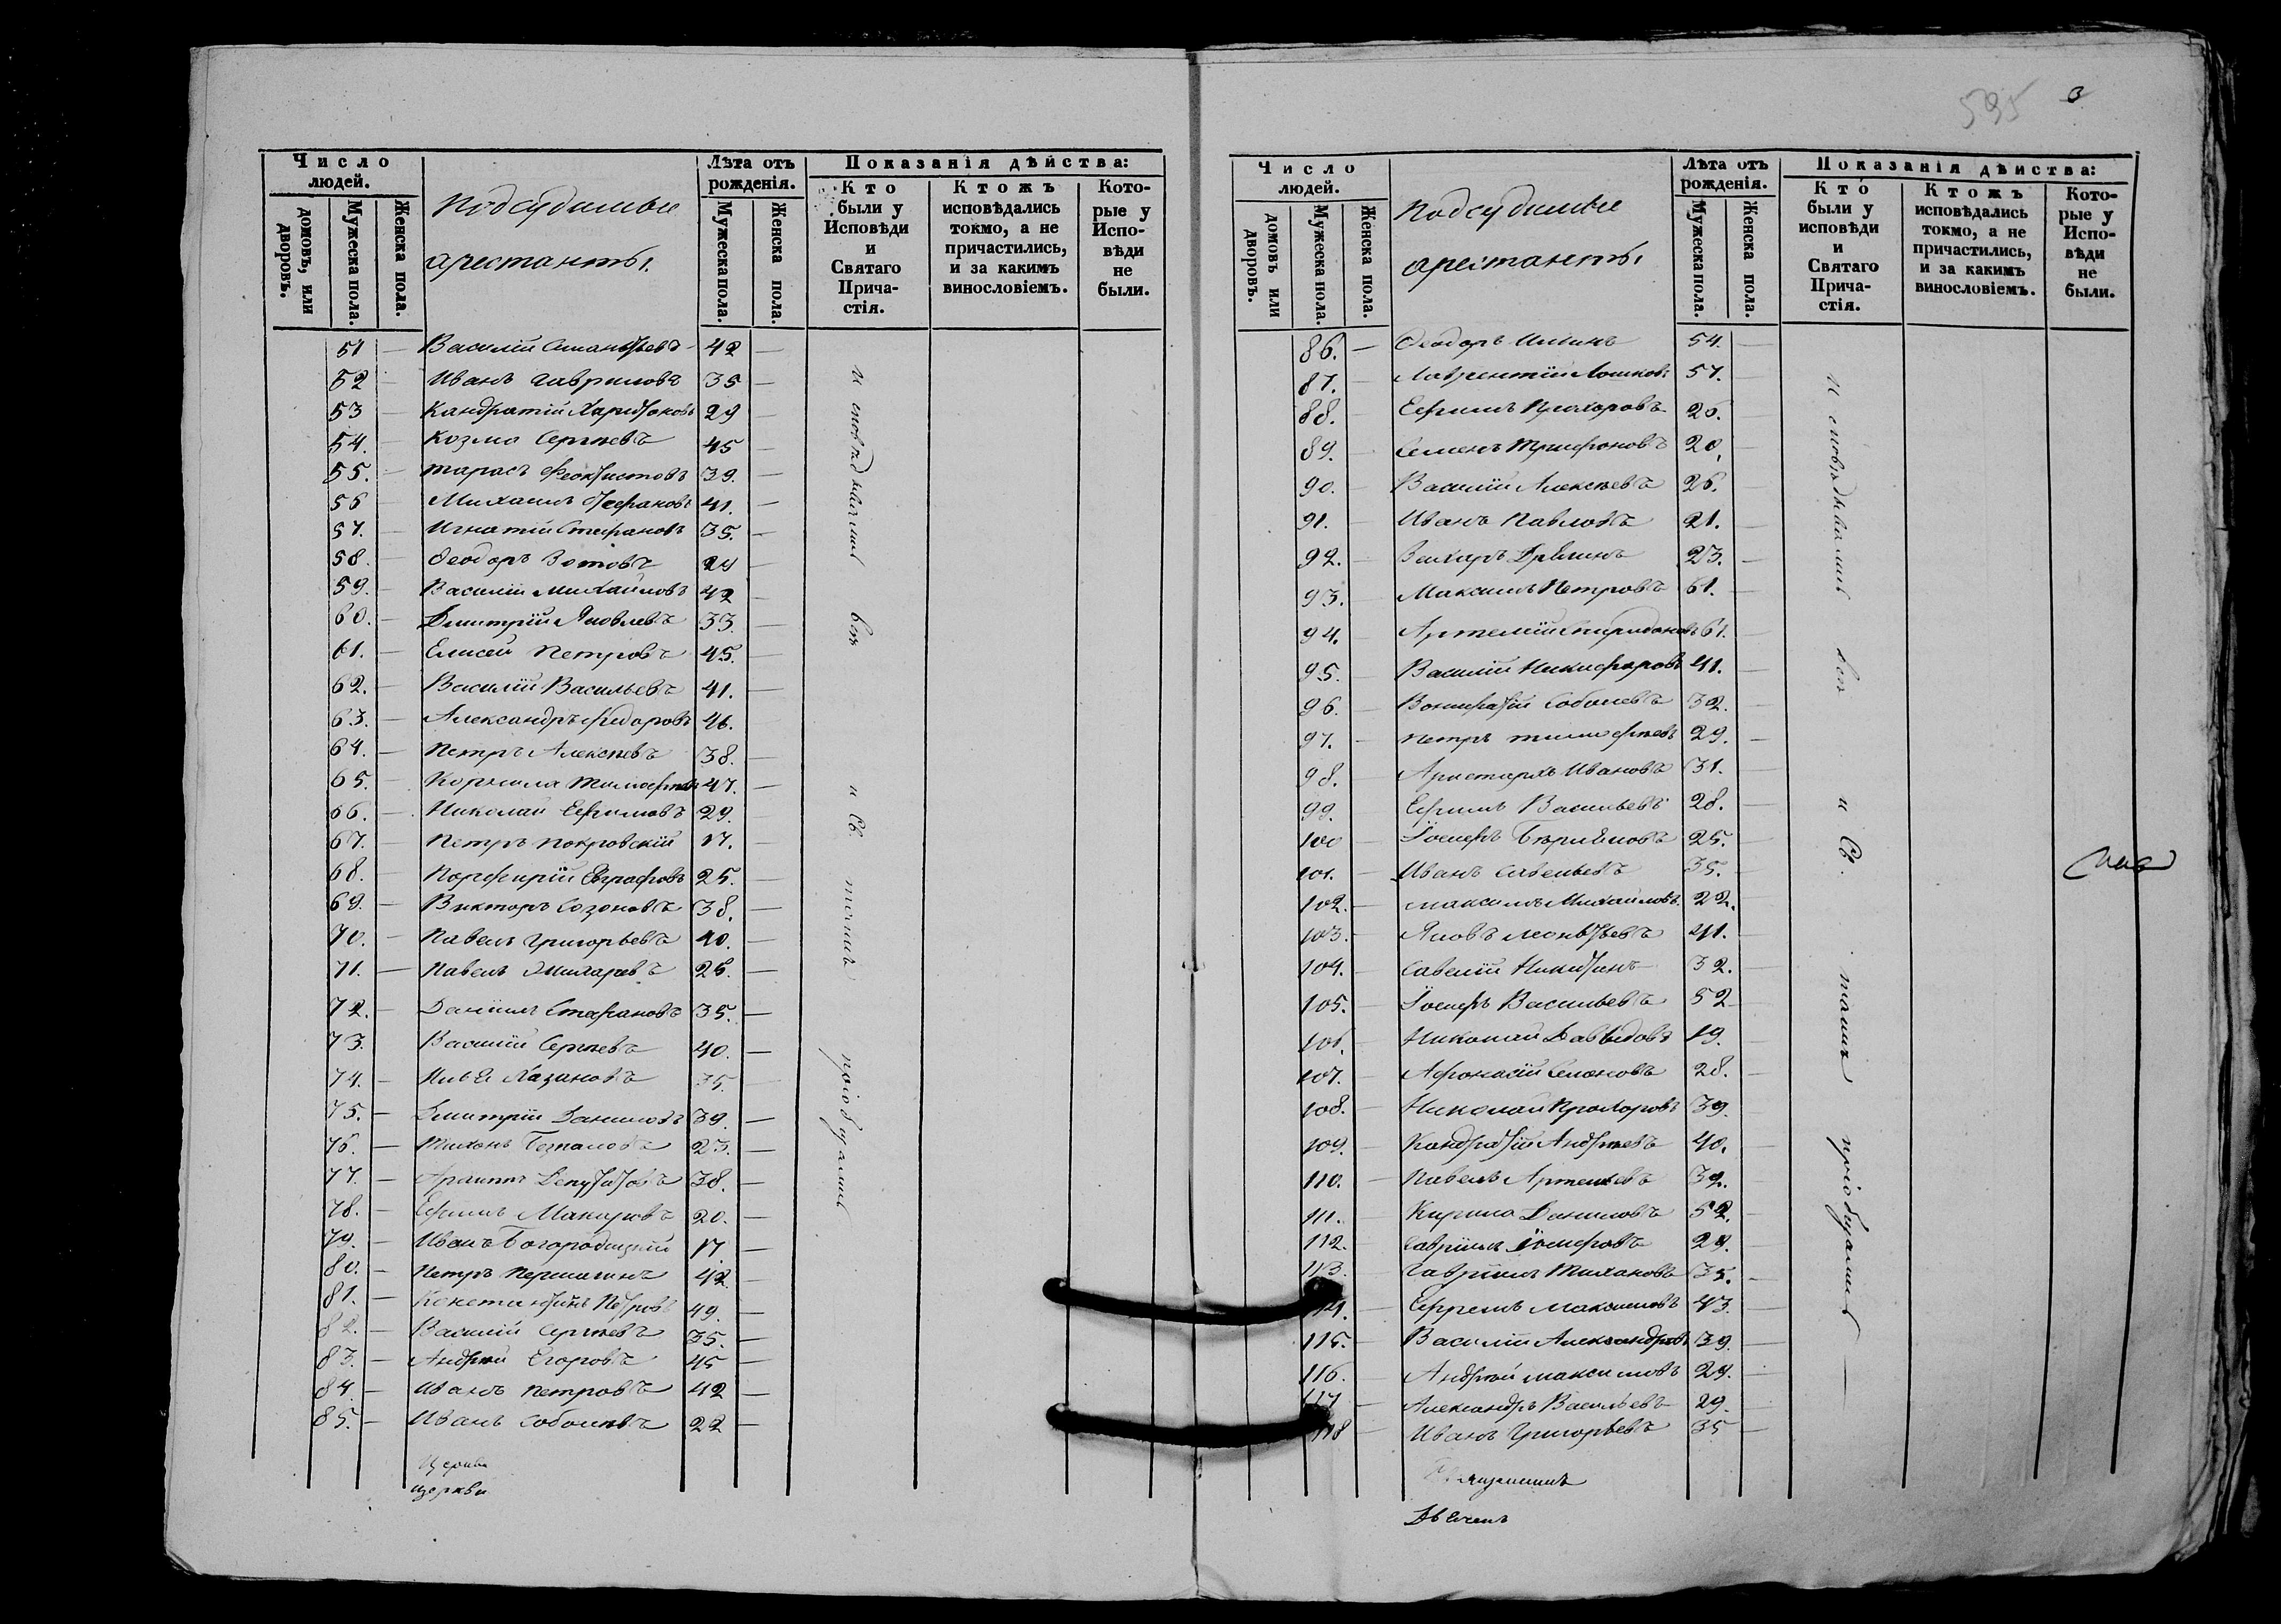 Число людей.
домовъ, или дворовъ.
Мужеска пола.
Женска пола.
Подсудимые
арестанты.
Лѣта отъ рожденія.
Мужеска пола.
Женска пола.
Показанія дѣйства:
Кто были у Исповѣди и Святаго Прича-стія.
Ктожъ исповѣдались токмо, а не причастились, и за какимъ винословіемъ.
Кото-рые у Испо-вѣди не были.
51 — Василій 42 —
52 — Иванъ Гавриловъ 35 —
53 — Кандратій Харитоновъ 29 —
54. — Козма Сергѣевъ 45 —
55. — Тарасъ Феоктистовъ 39. —
56 — Михаилъ 41. —
57. — Игнатій Стефановъ 35. —
58. — Феодоръ Зотовъ 24 —
59. — Василій Михайловъ 42 —
60. — Дмитрій Яковлевъ 33. —
61. — Елисей Петровъ 45. —
62. — Василій Васильевъ 41. —
63. — Александръ Федоровъ 46.
64. — Петръ Алексѣевъ 38. —
65. — Корнила Тимофѣевъ 47. —
66. — Николай Ефимовъ 29. —
67. — Петръ Покровскій 17. —
68. — Порфирій Евграфовъ 25. —
69. — Викторъ Созоновъ 38. —
70. — Павелъ Григорьевъ 40. —
71. — Павелъ 26. —
72. — Даніилъ Стафановъ 35. —
73. — Василій Сергѣевъ 40. —
74. — Илья Хазановъ 35. —
75. — Дмитрій Даниловъ 39. —
76. — Тихонъ 23. —
77. — Архипъ Депутатовъ 38. —
78. — Ефимъ Макаровъ 20. —
79. — Иванъ Богородицкій 17. —
80. — Петръ Першагинъ 42 —
81. — Константинъ Петровъ 49. —
82. — Василій Сергѣевъ 35. —
83. — Андрей Егоровъ 45 —
84. — Иванъ Петровъ 42 —
85. — Иванъ Соболевъ 22 —
исповѣдывались всѣ и Св. таинъ пріобщались
церкви
595
3
Число людей.
домовъ или дворовъ.
Мужеска пола.
Женска пола.
Подсудимые
арестанты
Лѣта отъ рожденія.
Мужеска пола.
Женска пола.
Показанія дѣиства:
Кто были у исповѣди и Святаго Прича-стія.
Ктожъ исповѣдались токмо, а не причастились, и за какимъ винословіемъ.
Кото-рые у Испо-вѣди не были.
86. — Феодоръ Илинъ 54. —
87. — Лаврентій Лошковъ 57. —
88. — Ефимъ Прохоровъ 26. —
89. — Семенъ Трифоновъ 20. —
90. — Василій Алексѣевъ 26. —
91. — Иванъ Павловъ 21. —
92. — Захаръ 23. —
93. — Максимъ Петровъ 61. —
94. — Артемій Спиридоновъ 61. —
95. — Василій Никифоровъ 41. —
96. — Вонифатій Соболевъ 32. —
97. — Петръ Тимофѣевъ 29. —
98. — Аристархъ Ивановъ 31. —
99. — Ефимъ Васильевъ 28. —
100 — Іосифъ 25. —
101. — Иванъ Савельевъ 35. —
102. — Максимъ Михайловъ 22.
103. — Яковъ Леонтьевъ 41. —
104. — Савелій Никитинъ 32. —
105. — Іосифъ Васильевъ 52
106. — Николай Давыдовъ 19.
107. — Афонасій Семоновъ 28. —
108. — Николай Прохоровъ 39.
109. — Кондратій Андреевъ 40. —
110. — Павелъ Артемьевъ 32. —
111. — Кирила Даниловъ 52. —
112. — Гавріилъ Іосифовъ 24. —
113. — Гавріилъ Тихановъ 35. —
114. — Ефремъ Максимовъ 43. —
115. — Василій Александровъ 39. —
116. — Андрей Максимовъ 24. —
117 — Александръ Васильевъ 29. —
118 — Иванъ Григорьевъ 35 —
исповѣдывались всѣ и Св. таинъ пріобщались —